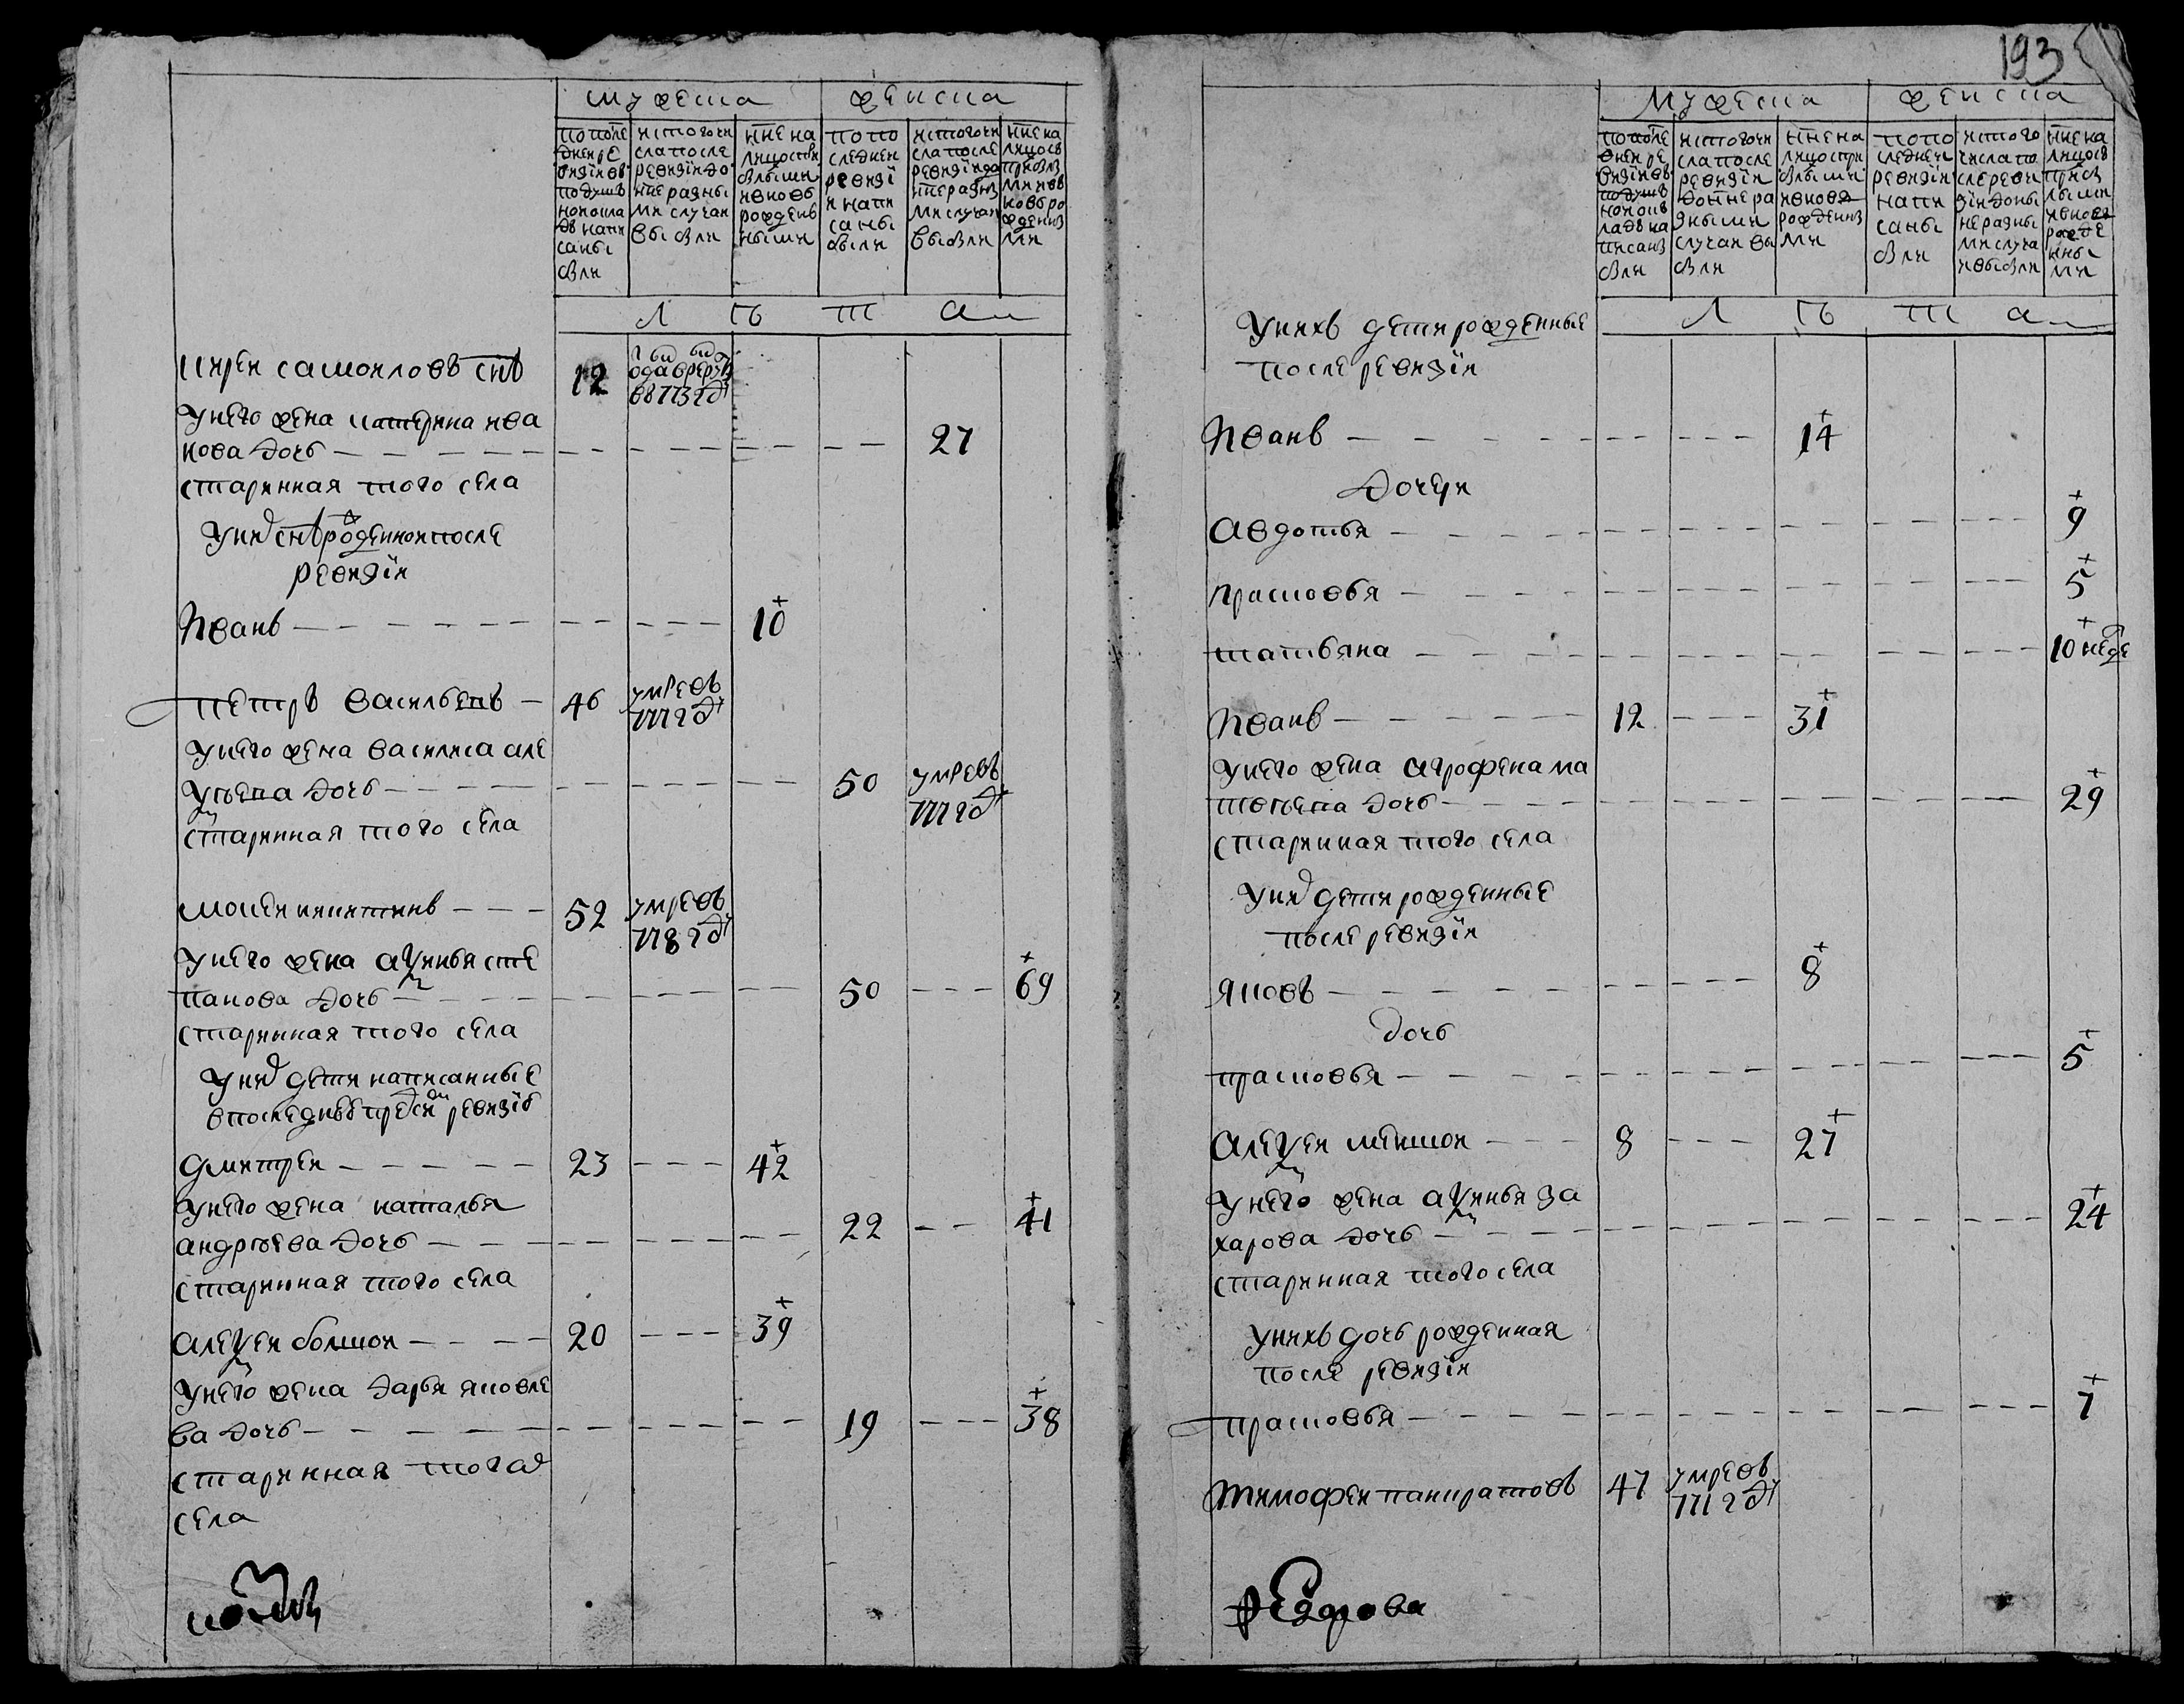 193
мужеска женска
по после
дней ре
визіи въ
подушъ
номъ окла
дѣ напи
саны
были
ис того чи
сла после
ревизіи до
нне разны
ми случаи
выбыли
нне на
лицо с при
былыми
и вновь
рожденъ
ными
по по
следней
ревизі
и напи
саны
были
ис того чи
сла после
ревизіи до
нне разны
ми случаи
выбыли
нне на
лицо съ
прибылы
ми и въ
новь ро
жденны
ми
л ѣ т а
кирей самойловъ снъ 12
в 1773 год
у него жена катерина ива
нова дочь 27
старинная того села
у них снъ рожденной после
ревизіи
Иванъ 10
петръ васильевъ 46 умре въ
777 год
у него жена василиса але
ксѣева дочь 50 умре въ
777 год
старинная того села
мокей никитинъ 52 умре въ
778 год
у него жена аксинья сте
панова дочь 50 69
старинная того села
у них дети написанные
в последней пред сим ревизіи
дмитрей 23 42
у него жена наталья
андреева дочь 22 41
старинная того села
алексей болшой 20 39
у него жена дарья яковле
ва дочь 19 38
старинная того ж
села
мужеска женска
по после
дней ре
визіи въ
подушъ
номъ ок
ладѣ на
писаны
были
ис того чи
сла после
ревизіи
до нне ра
зными
случаи вы
были
нне на
лицо с при
былыми
и вновь
рожденны
ми
по по
следней
ревизіи
напи
саны
были
ис того
числа по
сле реви
зіи до ны
не разны
ми случа
и выбыли
нне на
лицо съ
приб
лыми
и вновь
рожде
нны
ми
л ѣ т а
у нихъ дети рожденные
после ревизіи
Иванъ 14
дочери
авдотья 9
прасковья 5
татьяна 10 неде
Иванъ 12 31
у него жена агрофена ма
твѣева дочь 29
старинная того села
у них дети рожденные
после ревизіи
яковъ 8
дочь
прасковья 5
алексей меншой 8 27
у него жена аксинья за
харова дочь 24
старинная того села
у нихъ дочь рожденная
после ревизіи
прасковья 7
тимофей панкратовъ 47 умре въ
771 год
федорова